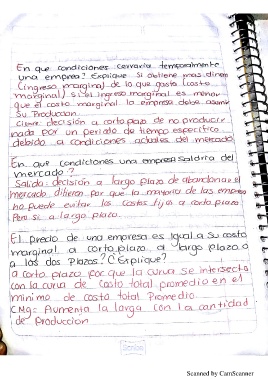 En que condiciones cerraria temporalmente
una empresa? Explique Si obtiene mas dinero
(ingreso marginal) de lo que gasta (costo
marginal) si el ingreso marginal es menor
que el costo marginal la empresa debe
Su Produccion
Cierre decisión a corto plazo de no producir
nada por un periodo de tiempo especifico
debido a condiciones actuales del mercado
En que condiciones una empresa saldria del
mercado?
Salida: decisión a largo plazo de abandonar el
mercado difieren por que la mayoria de las empresas
no puede evitar los costos fijos a corto plazo
Pero si a largo plazo.
El precio de una empresa es igual a su costo
marginal a corto plazo, a largo plazo o
a los dos plazos? ¿Explique?
a corto plazo por que la curva se intersecta
con la curva de costo total promedio en el
minimo de costo total Promedio
CMg= Aumenta la larga con la cantidad
de Produccion
Scanned by CamScanner